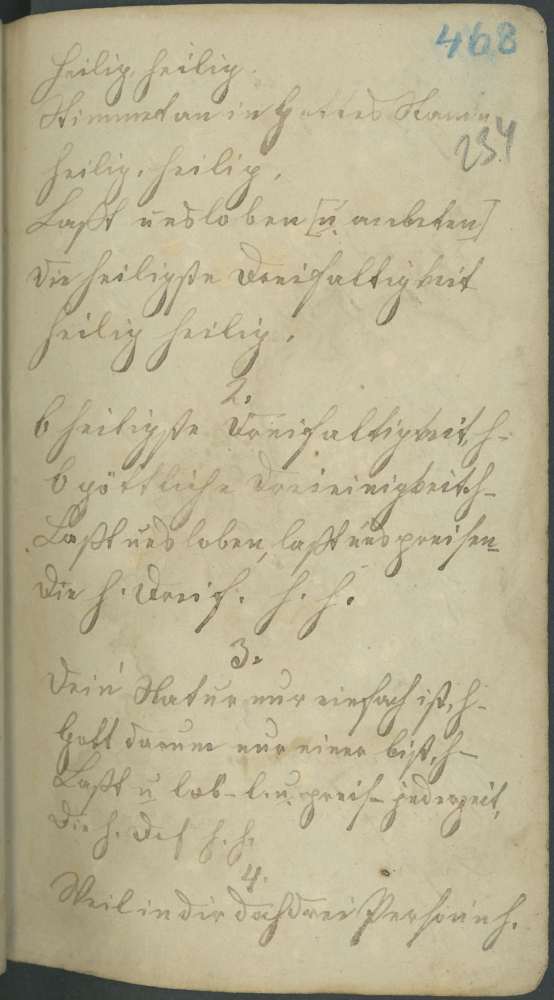 468
Heilig, heilig.
Stimmet an in Gottes Namen
234
heilig, heilig,
Laßt uns loben [u. anbeten]
Die heiligste Dreifaltigkeit
heilig heilig.
2.
O heiligste Dreifaltigkeit, h-
O göttliche Dreieinigkeit, h-
Laßt uns loben, laßt uns preisen
Die h. Dreif. h. h.
3.
Dein Natur nur einfach ist, h-
Gott darum nur einer bist, h-
Laßt u lob- l. u. preis- jederzeit,
Die h. Drf h. h.
4.
Weil in dir doch drei Person h.